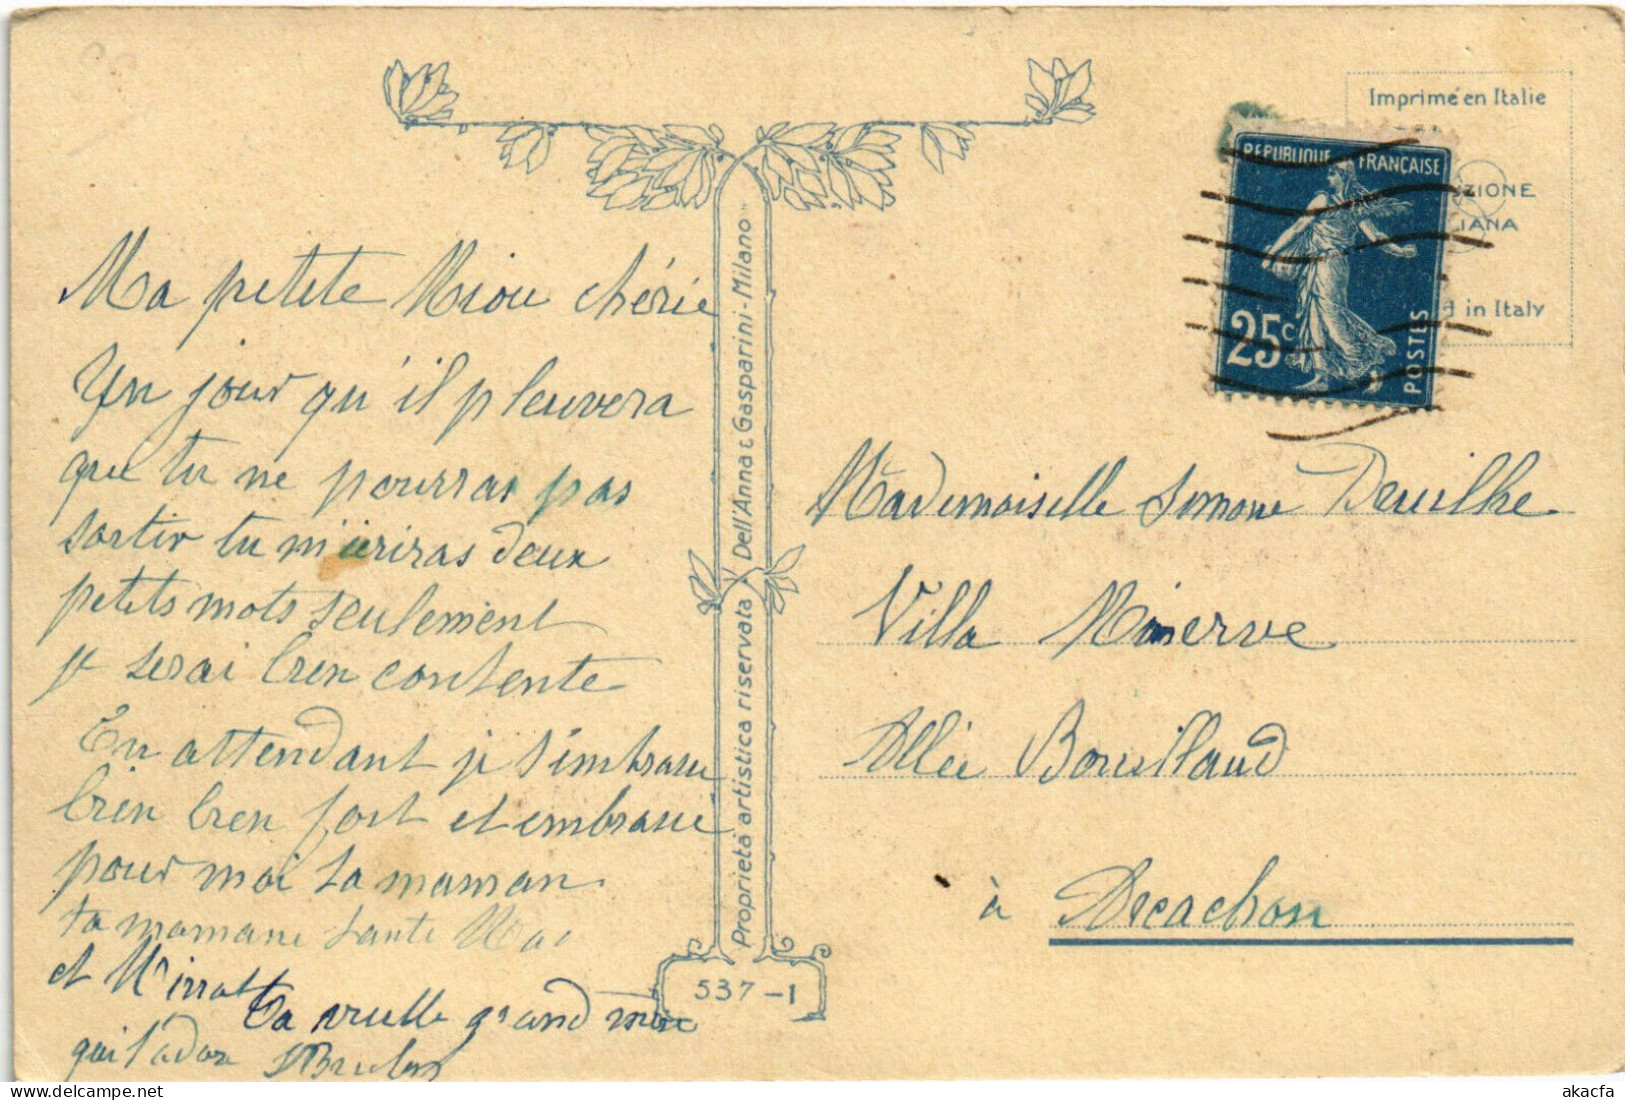 Ma petite Miou chérie
Un jour qu'il pleuvera
que tu ne pourras pas
sortir tu m'ècriras deux
petits mots seulement
je serai bien contente
En attendant je t'embrasse
bien bien fort et embrasse
pour moi ta maman
ta mamane tante
et
ta vieille grand mère
qui t'adore
Proprietà artistica riservata Dell'Anna & Gasparini - Milano
537-1
Imprimé en Italie
ZIONE
IANA
in Italy
REPUBLIQUE FRANÇAISE
25c
POSTES
Mademoiselle Simone Druilhe
Villa Minerve
Allée Bouillaud
à Arcachon
akacfa